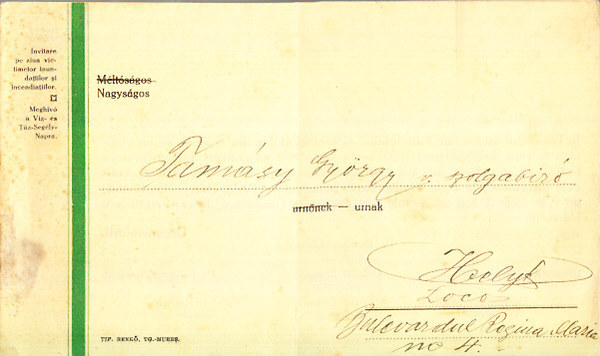 Invitare
pe ziua vic-
timelor inun-
dațiilor și
incendiaților.
Meghívó
a Víz- és
Tűz-Segély-
Napra.
Méltóságos
Nagyságos
Tamásy György szolgabíró
urnőnek — urnak
Helyt
Loco
Bulevardul Regina Maria
no 4.
TIP. BENKŐ, TG.-MUREȘ.